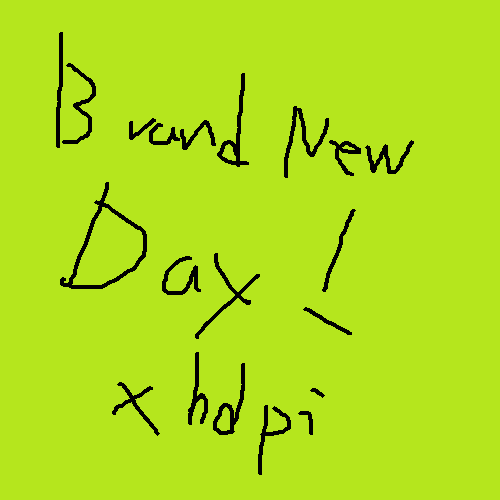 Brand New
Day!
xhdpi